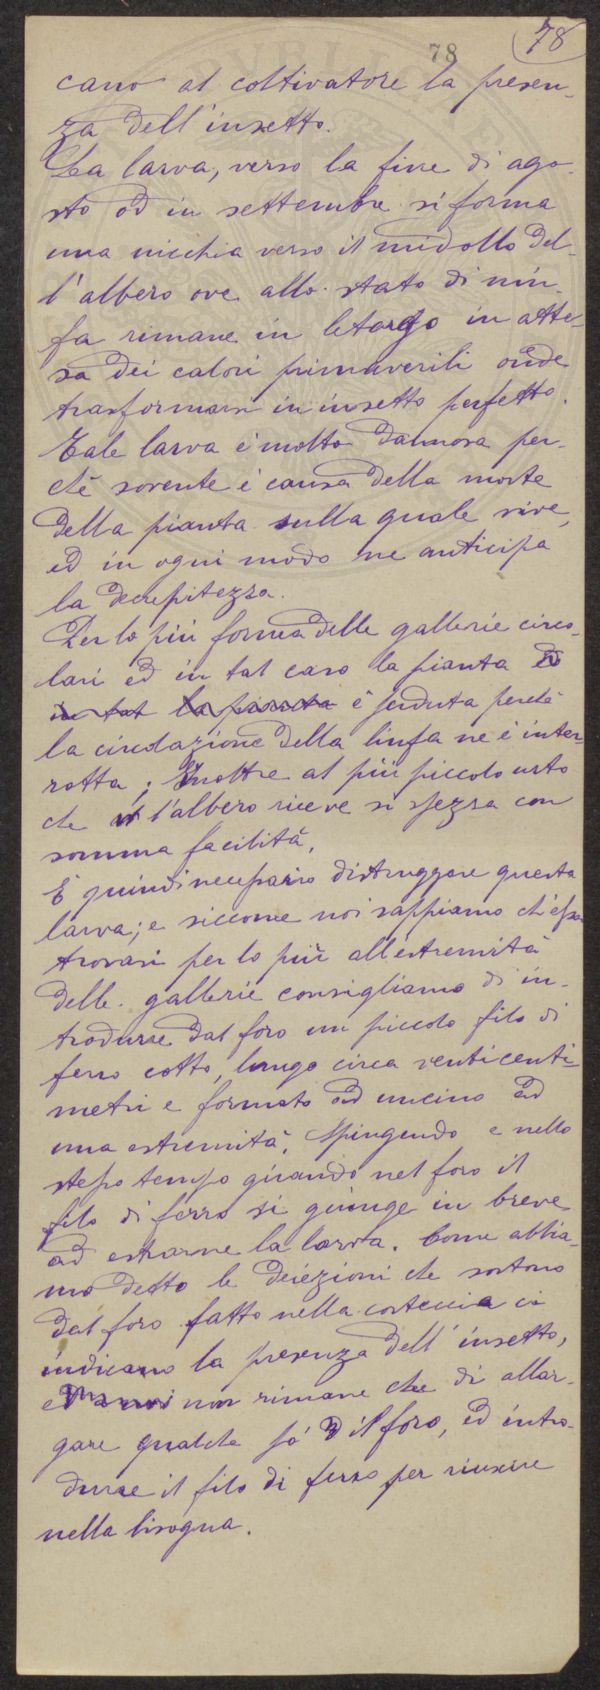 78
78
cano al coltivatore la presen-
za dell'insetto.
La larva, verso la fine di ago-
sto od in settembre si forma
una nicchia verso il midollo del-
l'albero ove allo stato di nin-
fa rimane in letargo in atte-
sa dei calori primaverili onde
trasformarsi in insetto perfetto.
Tale larva è molto dannosa per-
chè sovente è causa della morte
della pianta sulla quale vive,
ed in ogni modo ne anticipa
la decrepitezza.
Per lo più forma delle gallerie circo-
lari ed in tal caso la pianta
in tal la pianta è perduta perchè
la circolazione della linfa ne è inter-
rotta; Inoltre al più piccolo urto
che l'albero riceve si spezza con
somma facilità.
È quindi necessario distruggere questa
larva; e siccome noi sappiamo ch'essa
trovasi per lo più all'estremità
delle gallerie consigliamo di in-
trodurre dal foro un piccolo filo di
ferro cotto, lungo circa venticenti-
metri e formato ad uncino ad
una estremità. Spingendo e nello
stesso tempo girando nel foro il
filo di ferro si giunge in breve
ad estrarne la larva. Come abbia-
mo detto le deiezioni che sortono
dal foro fatto nella corteccia ci
indicano la presenza dell'insetto,
ed a noi non rimane che di allar-
gare qualche pò il foro, ed intro-
durre il filo di ferro per riuscire
nella bisogna.